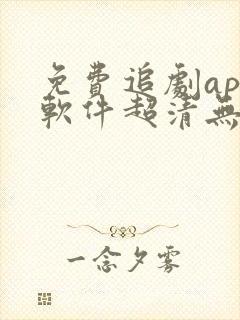 免費追劇ap
軟件超清無
一念夕霧